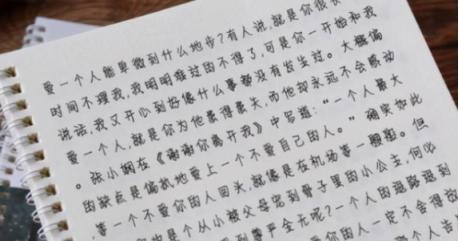 爱一个人能卑微到什么地步?有人说,就是你很长
时间不理我,我明明难过的不得了,可是你一开始和我
说话,我又开心到好像什么事都没有发生过。大概偏
爱一个人,就是你为他累得要夭,而他却永远不会感动
。张小娴在《谢谢你离开我》中写道:“一个人最大
的缺点是偏执地爱上一个不爱自己的人。”确实如此
,等一个不爱你的人回头,就像是在机场等一艘船。但
是个从小被父母宠到骨子里的小公主,何必
到尊严全无呢?一个人的退路退到
的人一定不会得
个人告